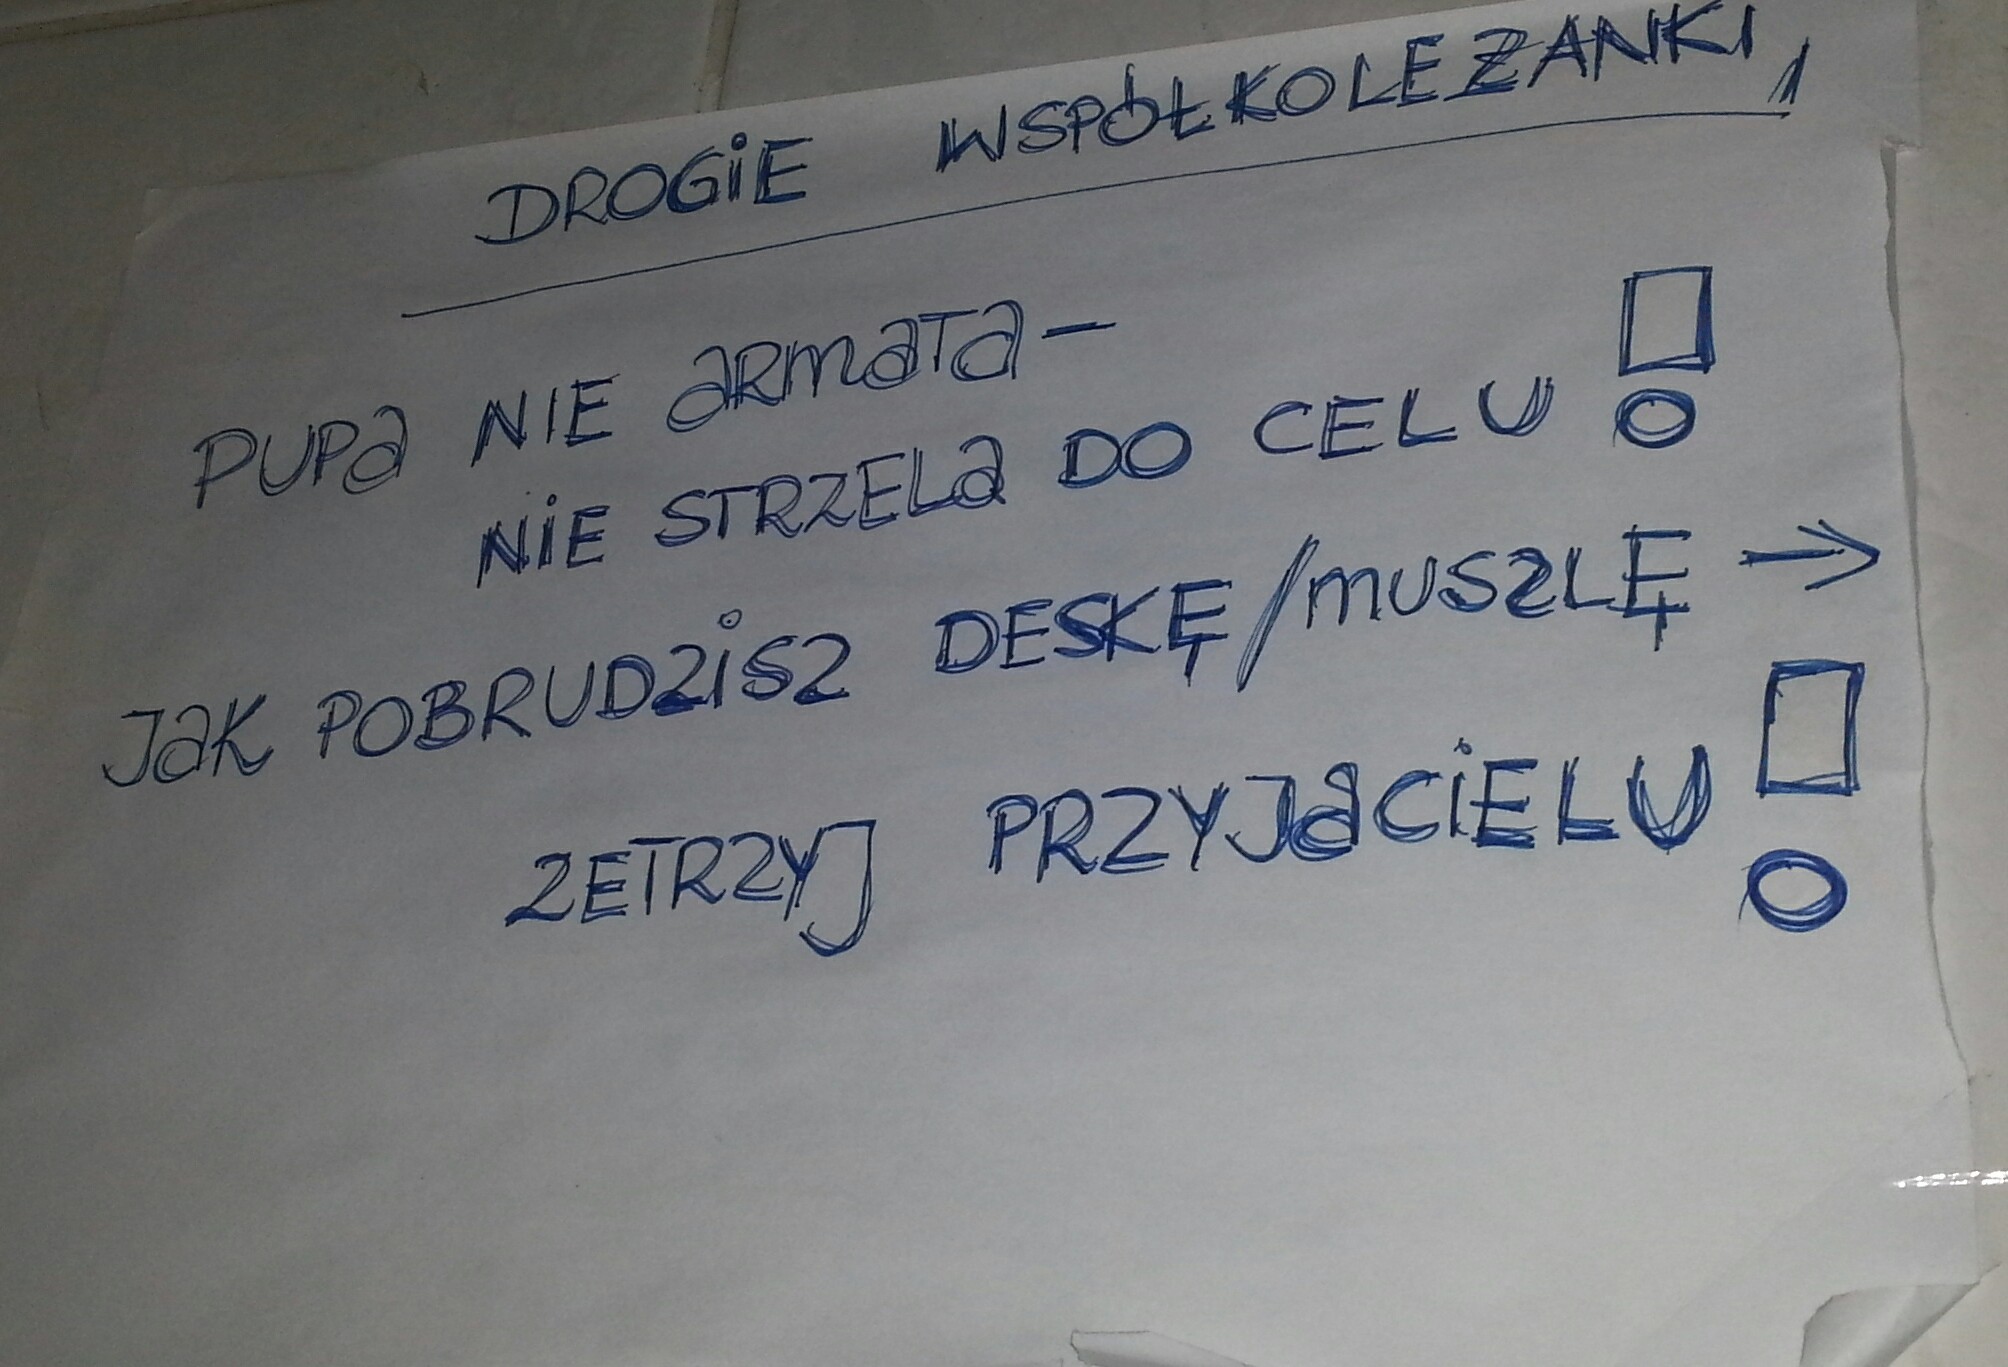 DROGIE WSPÓŁKOLEŻANKI,
PUPA NIE ARMATA -
NIE STRZELA DO CELU!
JAK POBRUDZISZ DESKĘ/MUSZLĘ →
ZETRZYJ PRZYJACIELU!